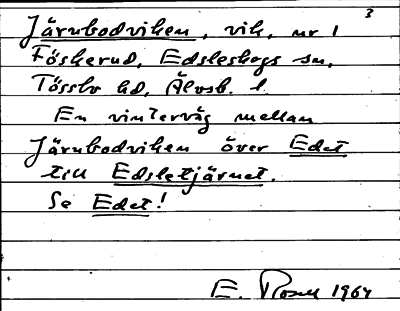 3
Järnbodviken, vik, nr 1
Föskerud, Edsleskogs sn,
Tössbo hd, Älvsb. l.
En vinterväg mellan
Järnbodviken över Edet
till Edsletjärnet.
Se Edet!
E. Rosell 1964